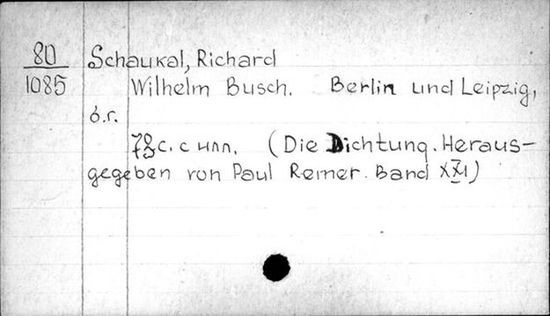 80
1085
Schaukal, Richard
Wilhelm Busch. Berlin und Leipzig,
б.г.
78 с. с илл. (Die Dichtung. Heraus-
gegeben von Paul Remer. Band XXI)